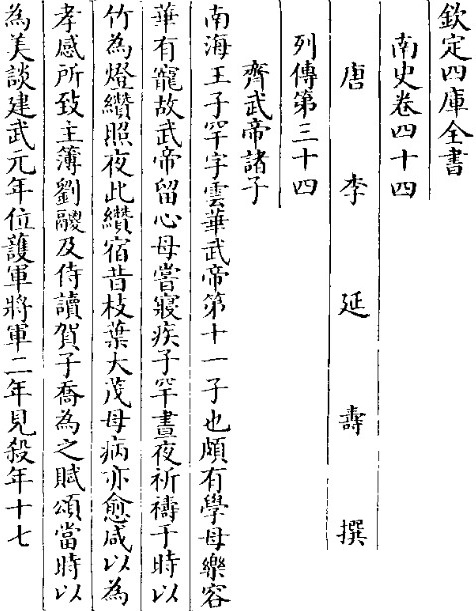 欽定四庫全書
南史卷四十四
唐李延壽撰
列傳第三十四
齊武帝諸子
南海王子罕字雲華武帝第十一子也頗有學母樂容
華有寵故武帝留心母嘗寢疾子罕晝夜祈禱于時以
竹為燈纉照夜此纉宿昔枝葉大茂母病亦愈咸以為
孝感所致主簿劉鬷及侍讀賀子喬為之賦頌當時以
為美談建武元年位護軍將軍二年見殺年十七